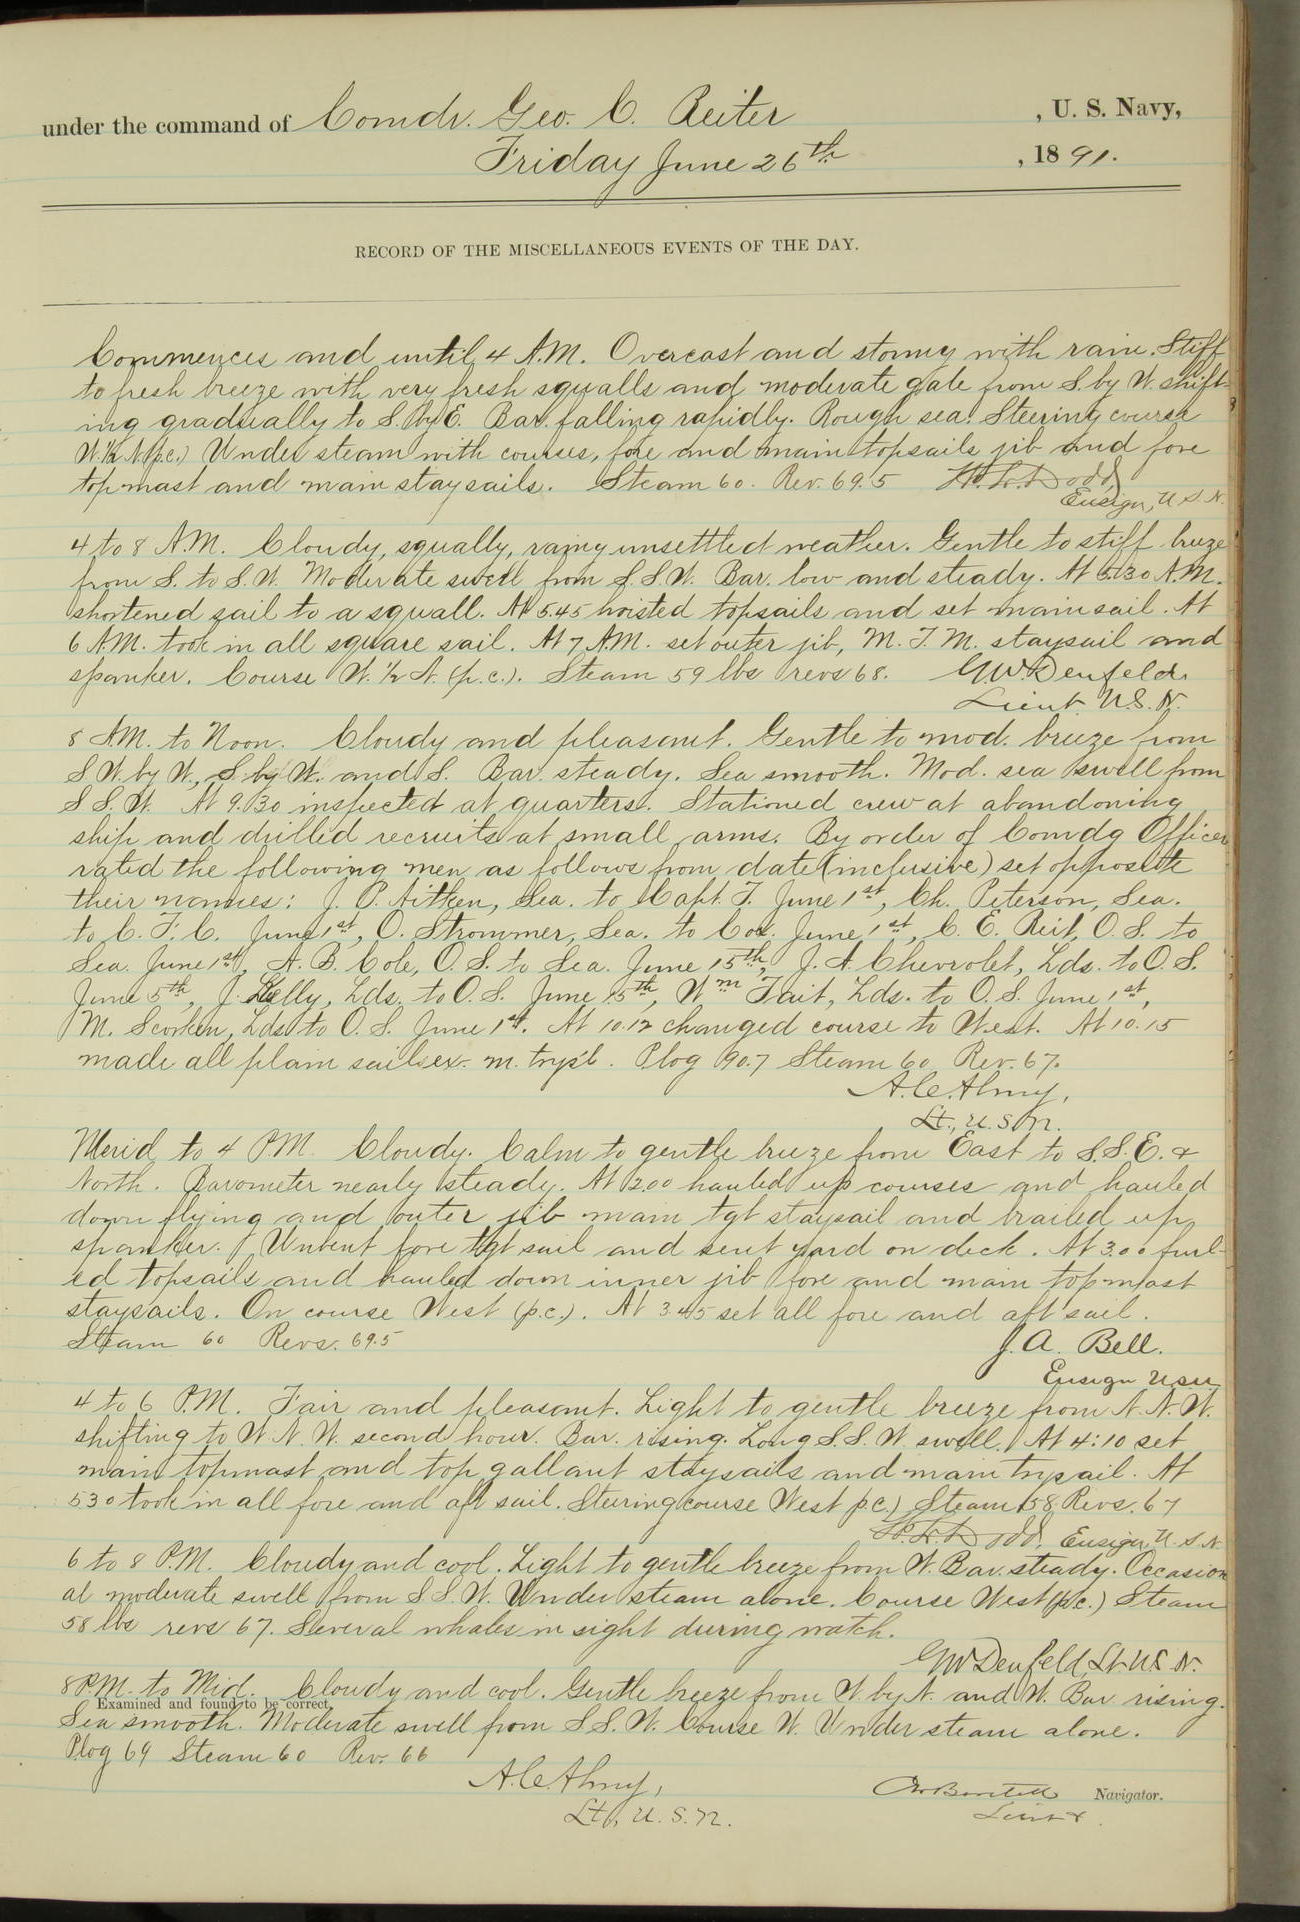 under the command of Comdr. Geo. C. Reiter , U. S. Navy,
Friday June 26th , 1891.
RECORD OF THE MISCELLANEOUS EVENTS OF THE DAY.
Commences and until 4 A.M. Overcast and stormy with rain. Stiff
to fresh breeze with very fresh squalls and moderate gale from S. by W. shift-
ing gradually to S. by E. Bar. falling rapidly. Rough sea. Steering course
W. 1/2 N. (p.c.) Under steam with courses, fore and main topsails jib and fore
topmast and main staysails. Steam 60. Rev. 69.5 Dodd
Ensign, U.S.N.
4 to 8 A.M. Cloudy, squally, rainy unsettled weather. Gentle to stiff breeze
from S. to S.W. Moderate swell from S.S.W. Bar. low and steady. At 5.30 A.M.
shortened sail to a squall. At 5.45 hoisted topsails and set mainsail. At
6 A.M. took in all square sail. At 7 A.M. set outer jib, M. T. M. staysail and
spanker. Course W. 1/2 N. (p.c.). Steam 59 lbs revs 68. GW Denfeld.
Lieut. U.S.N.
8 A.M. to Noon. Cloudy and pleasant. Gentle to mod. breeze from
S W. by W., S. by W. and S. Bar. steady. Sea smooth. Mod. sea swell from
S S.W. At 9.30 inspected at quarters. Stationed crew at abandoning
ship and drilled recruits at small arms. By order of Comdg Officer
rated the following men as follows from date (inclusive) set opposite
their names: J. P. Aitken, Sea. to Capt. T. June 1st, Ch. Peterson, Sea.
to C. F. C. June 1st, O. Strommer, Sea. to Cox. June 1st, C. E. Reit, O.S. to
Sea. June 1st, A. B. Cole, O.S. to Sea. June 15th, J. A. Chevrolet, Lds. to O.S.
June 5th, J. Kelly, Lds. to O.S. June 15th, Wm Tait, Lds. to O.S. June 1st,
M. Lds to O.S. June 1st. At 10.12 changed course to West. At 10.15
made all plain sail ex. m. trys'l. Plog 90.7 Steam 60 Rev. 67.
A. C. Almy,
Lt., U.S.N.
Merid to 4 P.M. Cloudy. Calm to gentle breeze from East to S.S.E. &
North. Barometer nearly steady. At 2.00 hauled up courses and hauled
down flying and outer jib main tgt staysail and brailed up
spanker. Unbent fore tgt sail and sent yard on deck. At 3.00 furl-
ed topsails and hauled down inner jib fore and main topmast
staysails. On course West (p.c.). At 3.45 set all fore and aft sail.
Steam 60 Revs. 69.5 J. A. Bell.
Ensign USN
4 to 6 P.M. Fair and pleasant. Light to gentle breeze from N.N.W.
shifting to W.N.W. second hour. Bar. rising. Long S.S.W. swell. At 4:10 set
main topmast and top gallant staysails and main trysail. At
5 30 took in all fore and aft sail. Steering course West p.c.) Steam 58 Revs. 67
Dodd, Ensign, U.S.N.
6 to 8 P.M. Cloudy and cool. Light to gentle breeze from W. Bar. steady. Occasion
al moderate swell from S S.W. Under steam alone. Course West (p.c.) Steam
58 lbs revs 67. Several whales in sight during watch.
GW Denfeld, Lt U.S.N.
8 P.M. to Mid. Cloudy and cool. Gentle breeze from W. by N. and W. Bar rising.
Examined and found to be correct.
Sea smooth. Moderate swell from S S.W. Course W. Under steam alone.
Plog 69 Steam 60 Rev. 66
A. C. Almy,
Lt, U.S.N.
Navigator.
Lieut